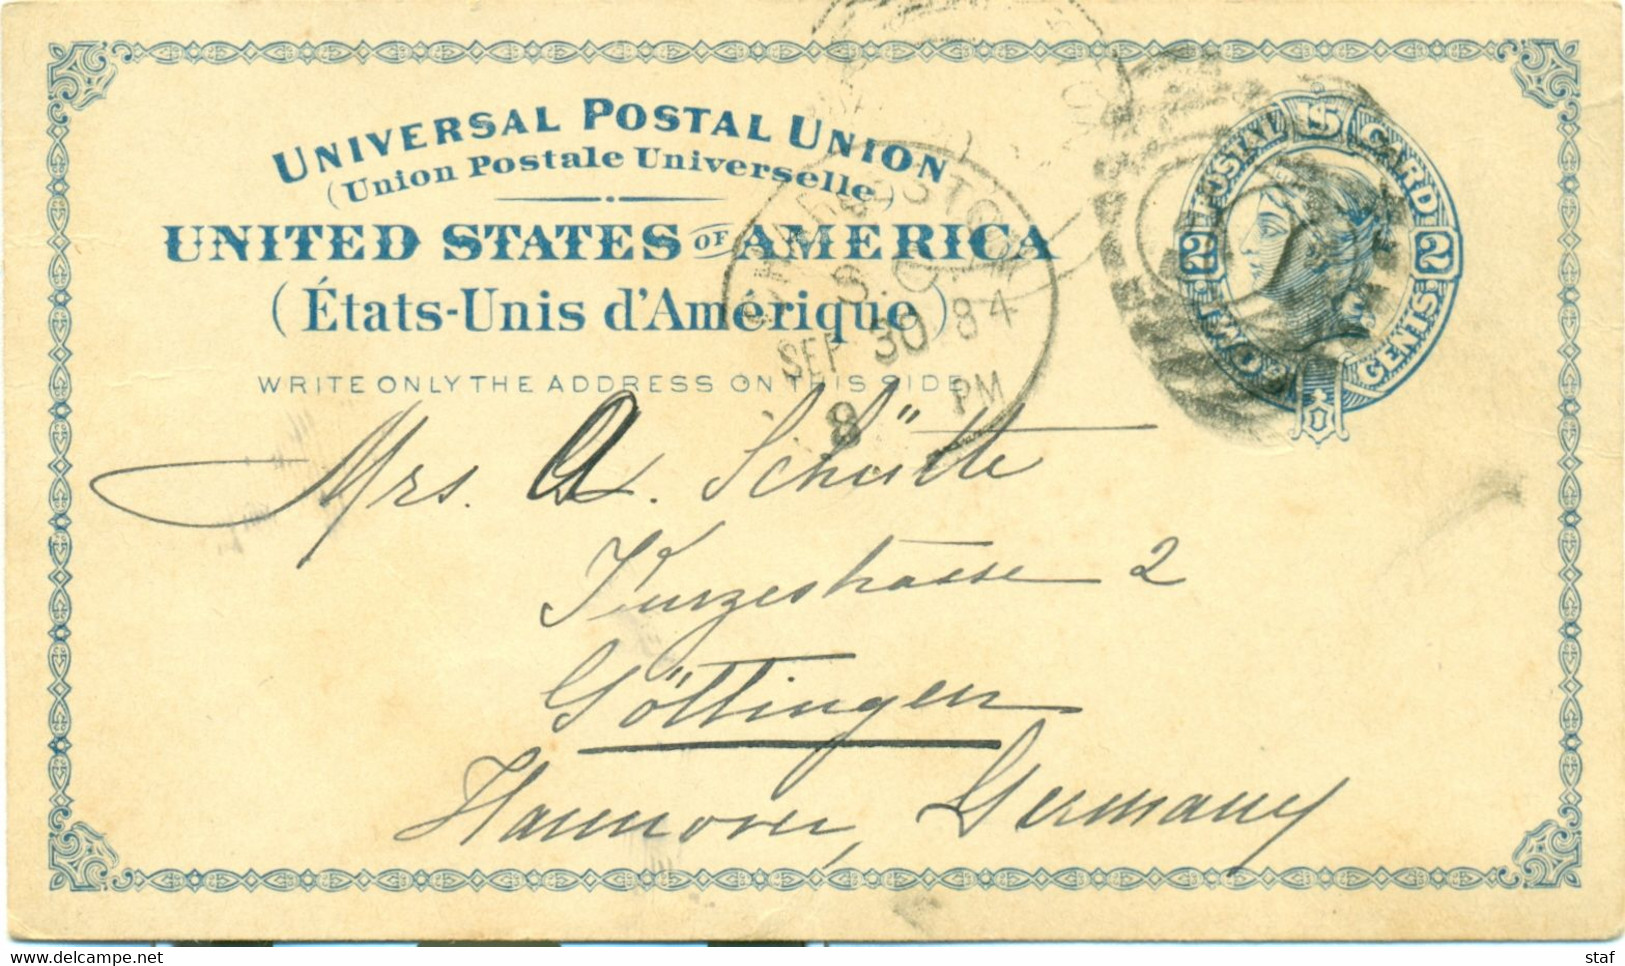 UNIVERSAL POSTAL UNION
(Union Postale Universelle)
UNITED STATES OF AMERICA
(États-Unis d'Amérique)
WRITE ONLY THE ADDRESS ON THIS SIDE
CHARLESTON
S.C.
SEP 30 84
8 PM
U.S. POSTAL CARD
2 TWO CENTS 2
Mrs. A. Schütte
Kurzestrasse 2
Göttingen
Hannover, Germany
hippostcard.com
staf